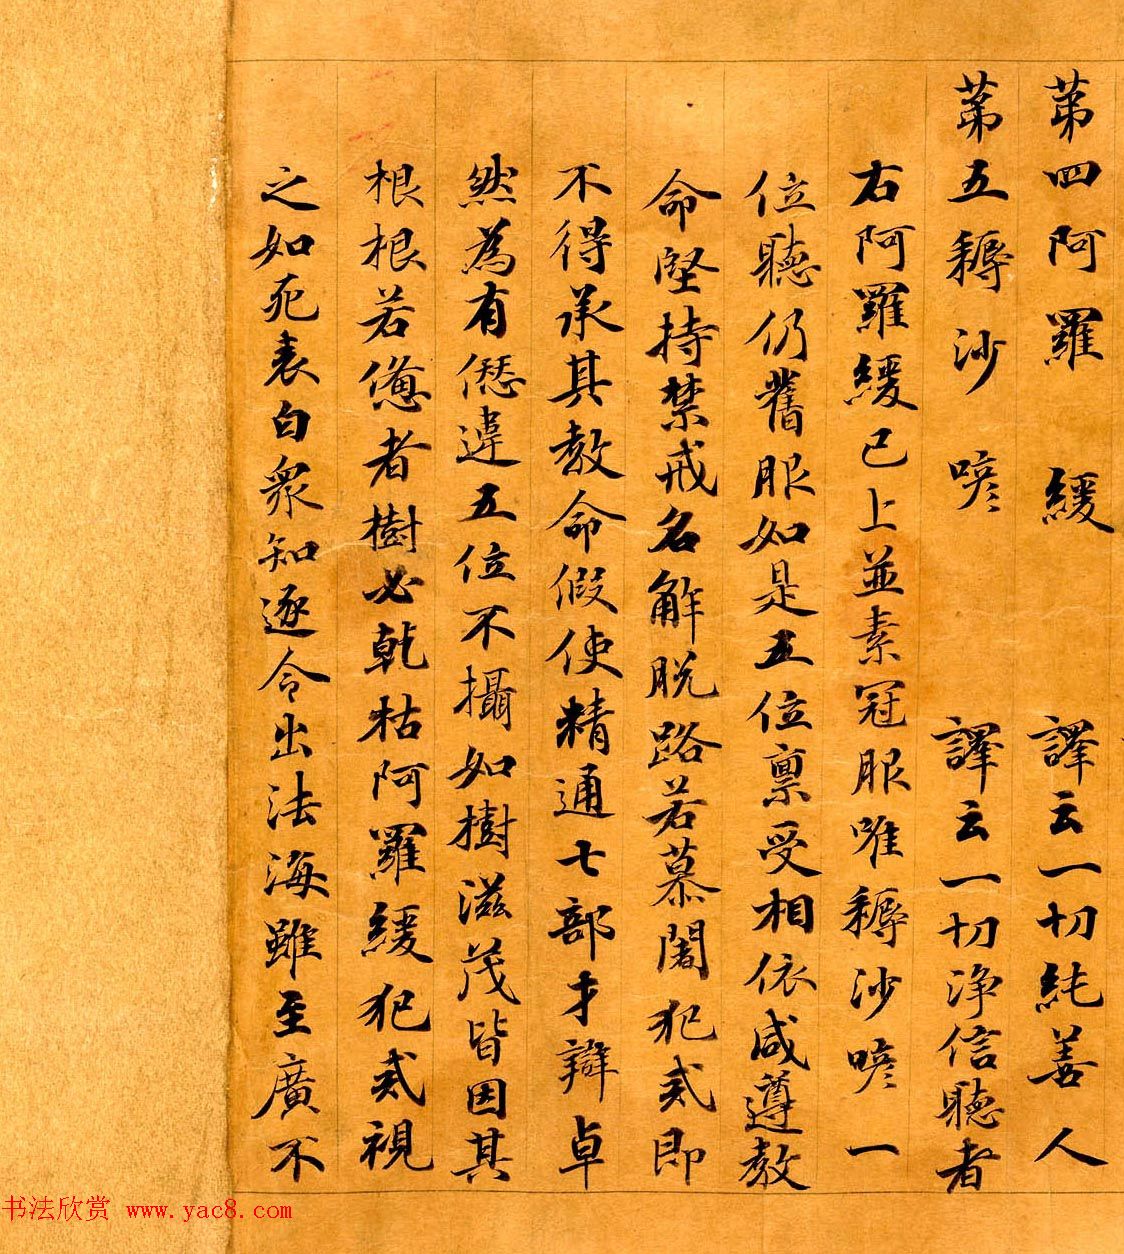 第四阿羅緩 譯云一切純善人
第五耨沙喭 譯云一切净信聽者
右阿羅緩已上並素冠服唯耨沙喭一
位聽仍舊服如是五位稟受相依咸遵教
命堅持禁戒名解脫路若慕闍犯戒即
不得承其教命假使精通七部才辯卓
然為有僁違五位不攝如樹滋茂皆因其
根根若憊者樹必乾枯阿羅緩犯戒視
之如死表白眾知逐令出法海雖至廣不
书法欣赏 www.yac8.com